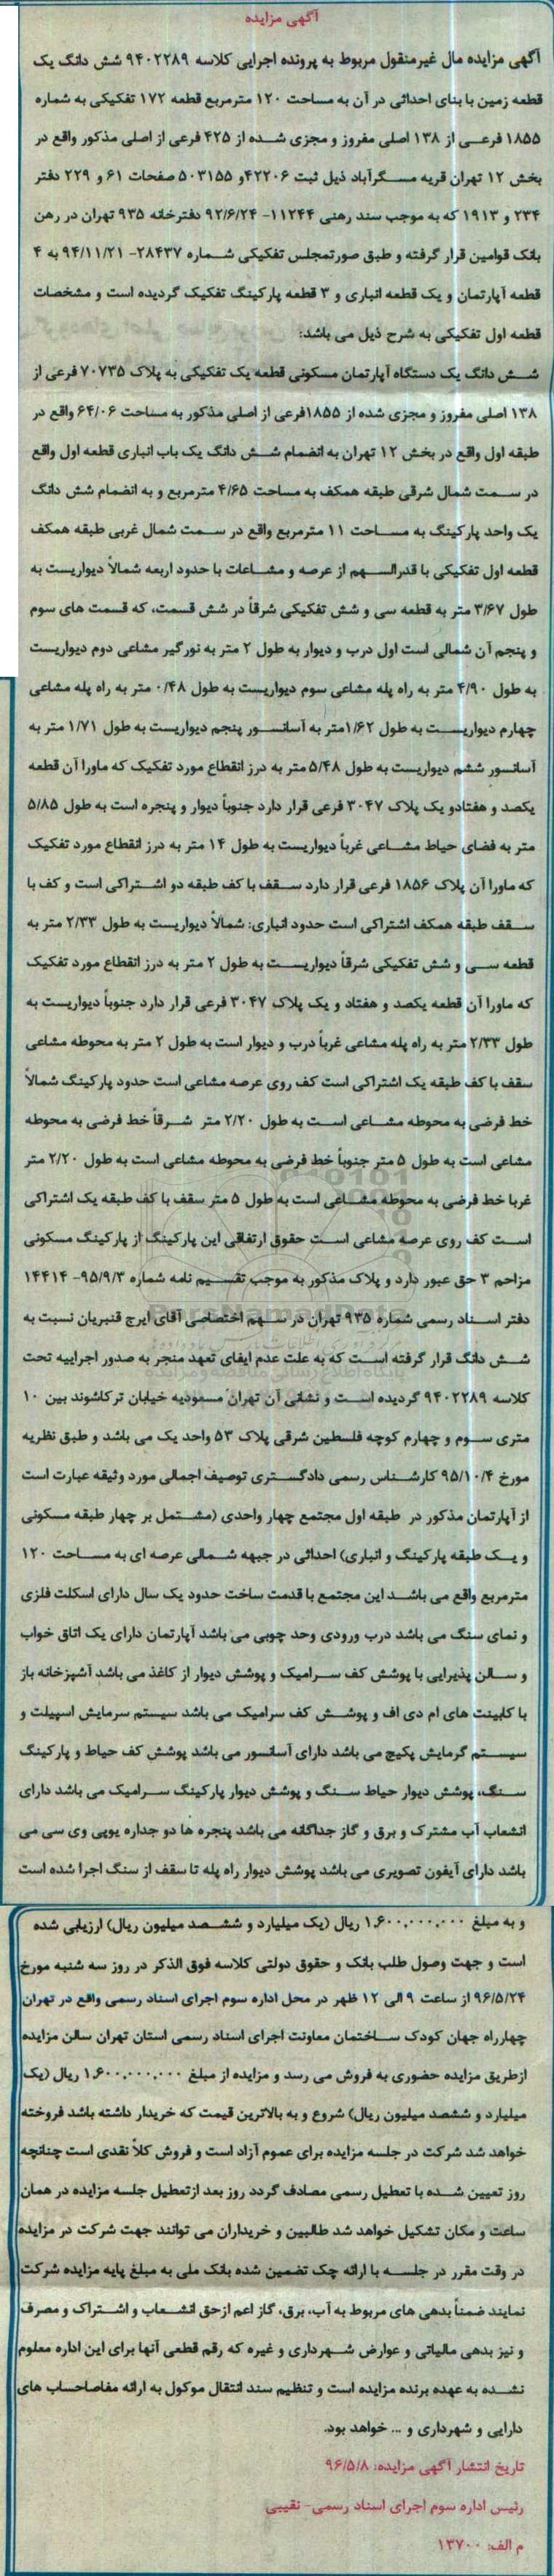 آگهی مزایده
آگهی مزایده مال غیرمنقول مربوط به پرونده اجرایی کلاسه ۹۴۰۲۲۸۹ شش دانگ یک
قطعه زمین با بنای احداثی در آن به مساحت ۱۲۰ مترمربع قطعه ۱۷۲ تفکیکی به شماره
۱۸۵۵ فرعی از ۱۳۸ اصلی مفروز و مجزی شده از ۴۲۵ فرعی از اصلی مذکور واقع در
بخش ۱۲ تهران قریه مسگرآباد ذیل ثبت ۴۲۲۰۶و ۵۰۳۱۵۵ صفحات ۶۱ و ۲۲۹ دفتر
۲۳۴ و ۱۹۱۳ که به موجب سند رهنی ۱۱۲۴۴- ۹۲/۶/۲۴ دفترخانه ۹۳۵ تهران در رهن
بانک قوامین قرار گرفته و طبق صورتمجلس تفکیکی شماره ۲۸۴۳۷- ۹۴/۱۱/۲۱ به ۴
قطعه آپارتمان و یک قطعه انباری و ۳ قطعه پارکینگ تفکیک گردیده است و مشخصات
قطعه اول تفکیکی به شرح ذیل می باشد:
شش دانگ یک دستگاه آپارتمان مسکونی قطعه یک تفکیکی به پلاک ۷۰۷۳۵ فرعی از
۱۳۸ اصلی مفروز و مجزی شده از ۱۸۵۵فرعی از اصلی مذکور به مساحت ۶۴/۰۶ واقع در
طبقه اول واقع در بخش ۱۲ تهران به انضمام شش دانگ یک باب انباری قطعه اول واقع
در سمت شمال شرقی طبقه همکف به مساحت ۴/۶۵ مترمربع و به انضمام شش دانگ
یک واحد پارکینگ به مساحت ۱۱ مترمربع واقع در سمت شمال غربی طبقه همکف
قطعه اول تفکیکی با قدرالسهم از عرصه و مشاعات با حدود اربعه شمالاً دیواریست به
طول ۳/۶۷ متر به قطعه سی و شش تفکیکی شرقاً در شش قسمت، که قسمت های سوم
و پنجم آن شمالی است اول درب و دیوار به طول ۲ متر به نورگیر مشاعی دوم دیواریست
به طول ۴/۹۰ متر به راه پله مشاعی سوم دیواریست به طول ۰/۴۸ متر به راه پله مشاعی
چهارم دیواریست به طول ۱/۶۲متر به آسانسور پنجم دیواریست به طول ۱/۷۱ متر به
آسانسور ششم دیواریست به طول ۵/۴۸ متر به درز انقطاع مورد تفکیک که ماورا آن قطعه
یکصد و هفتادو یک پلاک ۳۰۴۷ فرعی قرار دارد جنوباً دیوار و پنجره است به طول ۵/۸۵
متر به فضای حیاط مشاعی غرباً دیواریست به طول ۱۴ متر به درز انقطاع مورد تفکیک
که ماورا آن پلاک ۱۸۵۶ فرعی قرار دارد سقف با کف طبقه دو اشتراکی است و کف با
سقف طبقه همکف اشتراکی است حدود انباری: شمالاً دیواریست به طول ۲/۳۳ متر به
قطعه سی و شش تفکیکی شرقاً دیواریست به طول ۲ متر به درز انقطاع مورد تفکیک
که ماورا آن قطعه یکصد و هفتاد و یک پلاک ۳۰۴۷ فرعی قرار دارد جنوباً دیواریست به
طول ۲/۳۳ متر به راه پله مشاعی غرباً درب و دیوار است به طول ۲ متر به محوطه مشاعی
سقف با کف طبقه یک اشتراکی است کف روی عرصه مشاعی است حدود پارکینگ شمالاً
خط فرضی به محوطه مشاعی است به طول ۲/۲۰ متر شرقاً خط فرضی به محوطه
مشاعی است به طول ۵ متر جنوباً خط فرضی به محوطه مشاعی است به طول ۲/۲۰ متر
غربا خط فرضی به محوطه مشاعی است به طول ۵ متر سقف با کف طبقه یک اشتراکی
است کف روی عرصه مشاعی است حقوق ارتفاقی این پارکینگ از پارکینگ مسکونی
مزاحم ۳ حق عبور دارد و پلاک مذکور به موجب تقسیم نامه شماره ۹۵/۹/۳- ۱۴۴۱۴
دفتر اسناد رسمی شماره ۹۳۵ تهران در سهم اختصاصی آقای ایرج قنبریان نسبت به
شش دانگ قرار گرفته است که به علت عدم ایفای تعهد منجر به صدور اجراییه تحت
کلاسه ۹۴۰۲۲۸۹ گردیده است و نشانی آن تهران مسعودیه خیابان ترکاشوند بین ۱۰
متری سوم و چهارم کوچه فلسطین شرقی پلاک ۵۳ واحد یک می باشد و طبق نظریه
مورخ ۹۵/۱۰/۴ کارشناس رسمی دادگستری توصیف اجمالی مورد وثیقه عبارت است
از آپارتمان مذکور در طبقه اول مجتمع چهار واحدی (مشتمل بر چهار طبقه مسکونی
و یک طبقه پارکینگ و انباری) احداثی در جبهه شمالی عرصه ای به مساحت ۱۲۰
مترمربع واقع می باشد این مجتمع با قدمت ساخت حدود یک سال دارای اسکلت فلزی
و نمای سنگ می باشد درب ورودی وحد چوبی می باشد آپارتمان دارای یک اتاق خواب
و سالن پذیرایی با پوشش کف سرامیک و پوشش دیوار از کاغذ می باشد آشپزخانه باز
با کابینت های ام دی اف و پوشش کف سرامیک می باشد سیستم سرمایش اسپیلت و
سیستم گرمایش پکیج می باشد دارای آسانسور می باشد پوشش کف حیاط و پارکینگ
سنگ، پوشش دیوار حیاط سنگ و پوشش دیوار پارکینگ سرامیک می باشد دارای
انشعاب آب مشترک و برق و گاز جداگانه می باشد پنجره ها دو جداره یوپی وی سی می
باشد دارای آیفون تصویری می باشد پوشش دیوار راه پله تا سقف از سنگ اجرا شده است
و به مبلغ ۱.۶۰۰.۰۰۰.۰۰۰ ریال (یک میلیارد و ششصد میلیون ریال) ارزیابی شده
است و جهت وصول طلب بانک و حقوق دولتی کلاسه فوق الذکر در روز سه شنبه مورخ
۹۶/۵/۲۴ از ساعت ۹ الی ۱۲ ظهر در محل اداره سوم اجرای اسناد رسمی واقع در تهران
چهارراه جهان کودک ساختمان معاونت اجرای اسناد رسمی استان تهران سالن مزایده
ازطریق مزایده حضوری به فروش می رسد و مزایده از مبلغ ۱.۶۰۰.۰۰۰.۰۰۰ ریال (یک
میلیارد و ششصد میلیون ریال) شروع و به بالاترین قیمت که خریدار داشته باشد فروخته
خواهد شد شرکت در جلسه مزایده برای عموم آزاد است و فروش کلاً نقدی است چنانچه
روز تعیین شده با تعطیل رسمی مصادف گردد روز بعد ازتعطیل جلسه مزایده در همان
ساعت و مکان تشکیل خواهد شد طالبین و خریداران می توانند جهت شرکت در مزایده
در وقت مقرر در جلسه با ارائه چک تضمین شده بانک ملی به مبلغ پایه مزایده شرکت
نمایند ضمناً بدهی های مربوط به آب، برق، گاز اعم ازحق انشعاب و اشتراک و مصرف
و نیز بدهی مالیاتی و عوارض شهرداری و غیره که رقم قطعی آنها برای این اداره معلوم
نشده به عهده برنده مزایده است و تنظیم سند انتقال موکول به ارائه مفاصاحساب های
دارایی و شهرداری و ... خواهد بود.
تاریخ انتشار آگهی مزایده: ۹۶/۵/۸
رئیس اداره سوم اجرای اسناد رسمی- نقیبی
م الف: ۱۳۷۰۰